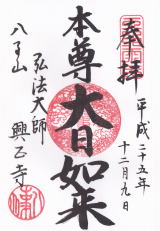 奉拝
平成二十五年
十二月九日
本尊大日如来
弘法大師
八事山
興正寺